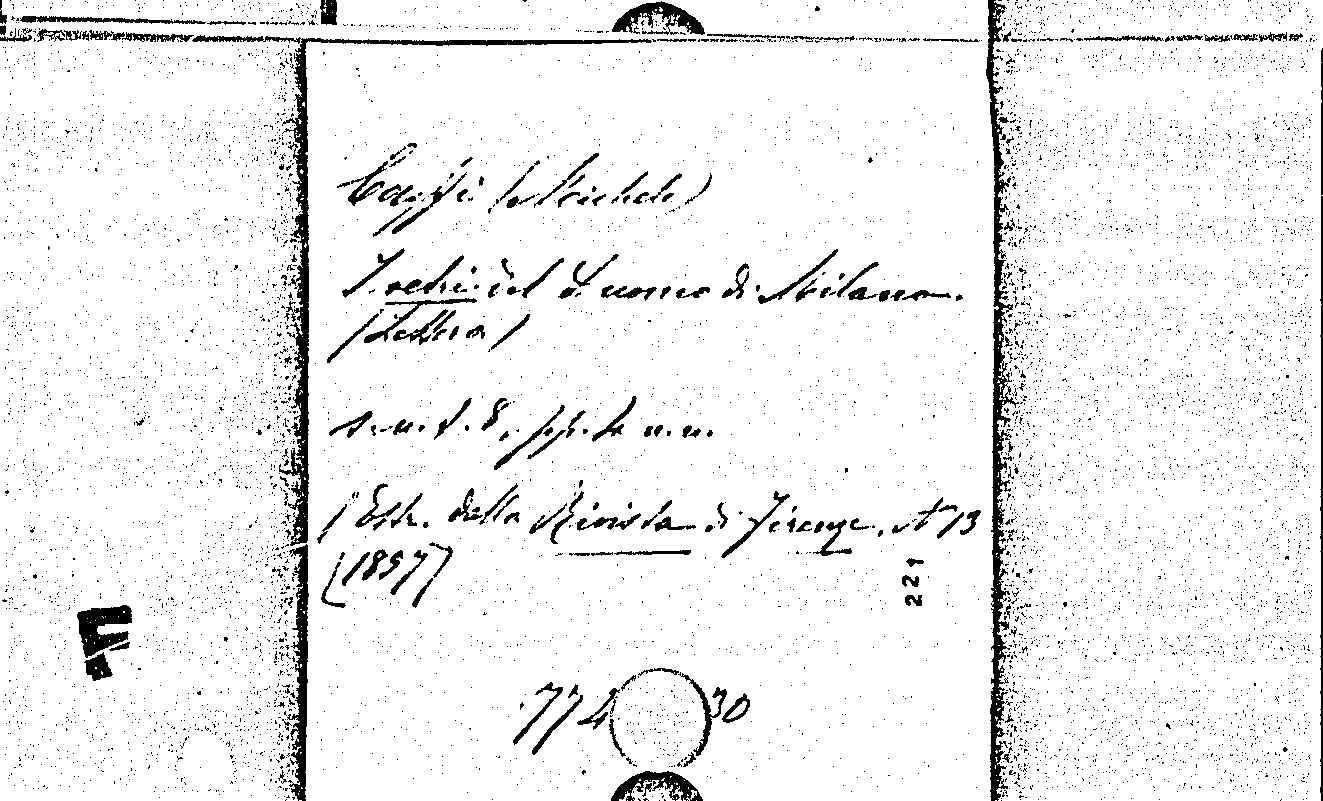 Caffi (Michele)
I vetri del Duomo di Milano.
(Lettera)
s.n.t. 8, pp. n.n.
(Estr. dalla Rivista di Firenze, N 13
(1857)
221
774 30
F